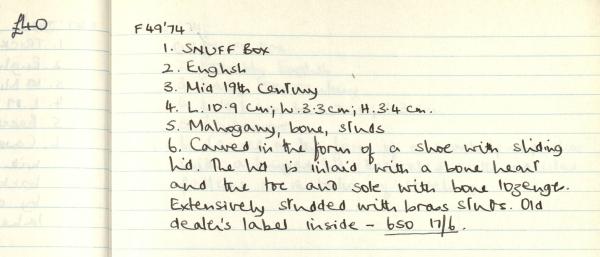 £40
F49'74
1. SNUFF BOX
2. English
3. Mid 19th Century
4. L.10.9 cm; W.3.3cm; H.3.4 cm.
5. Mahogany, bone, studs
6. Carved in the form of a shoe with sliding
lid. The lid is inlaid with a bone heart
and the toe and sole with bone lozenge.
Extensively studded with brass studs. Old
dealer's label inside - 650 17/6.